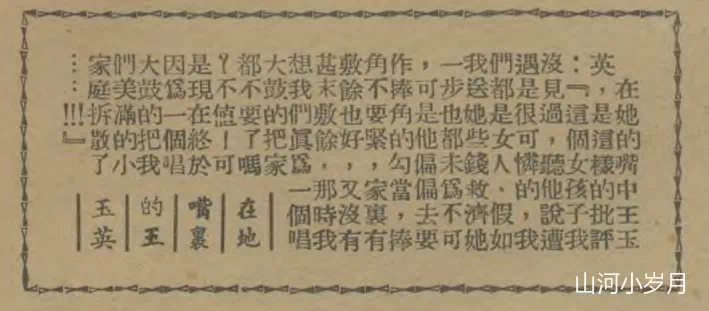 在她的嘴中王玉
英，是這樣的批評
：『這個女孩子我
沒見過，聽他說遭
遇是很可憐的，我
們都是女人、假如
我送她些錢救濟她
一步也都未爲不可
，可是他偏偏去要
作捧角的勾當，捧
角不要緊，家裏有
敷餘也好，又沒有
甚末敷餘，那時我
想我們眞爲一個唱
大鼓的把家
都不要了嗎
？不值！可
是現在終於
因爲一個唱
大鼓的把我
們美滿的小
家庭拆散了
……!!!』
在地
嘴裏
的王
玉英
山河小岁月